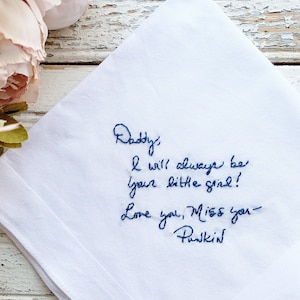 Daddy,
I will always be
your little girl!
Love you, Miss you-
Punkin